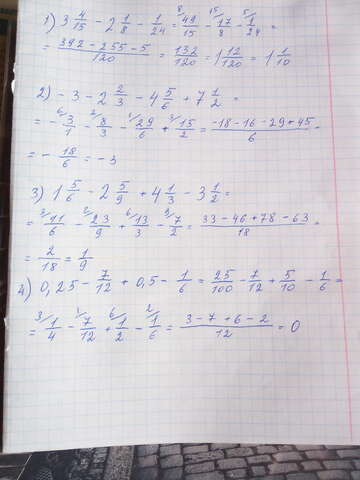 1) 3 4/15 - 2 1/8 - 1/24 = 8/ 49/15 - 15/ 17/8 - 5/ 1/24 =
= (392 - 255 - 5)/120 = 132/120 = 1 12/120 = 1 1/10
2) - 3 - 2 2/3 - 4 5/6 + 7 1/2 =
= - 6/ 3/1 - 2/ 8/3 - 1/ 29/6 + 3/ 15/2 = (-18 - 16 - 29 + 45)/6 =
= - 18/6 = - 3
3) 1 5/6 - 2 5/9 + 4 1/3 - 3 1/2 =
= 3/ 11/6 - 2/ 23/9 + 6/ 13/3 - 9/ 7/2 = (33 - 46 + 78 - 63)/18 =
= 2/18 = 1/9
4) 0,25 - 7/12 + 0,5 - 1/6 = 25/100 - 7/12 + 5/10 - 1/6 =
= 3/ 1/4 - 1/ 7/12 + 6/ 1/2 - 2/ 1/6 = (3 - 7 + 6 - 2)/12 = 0